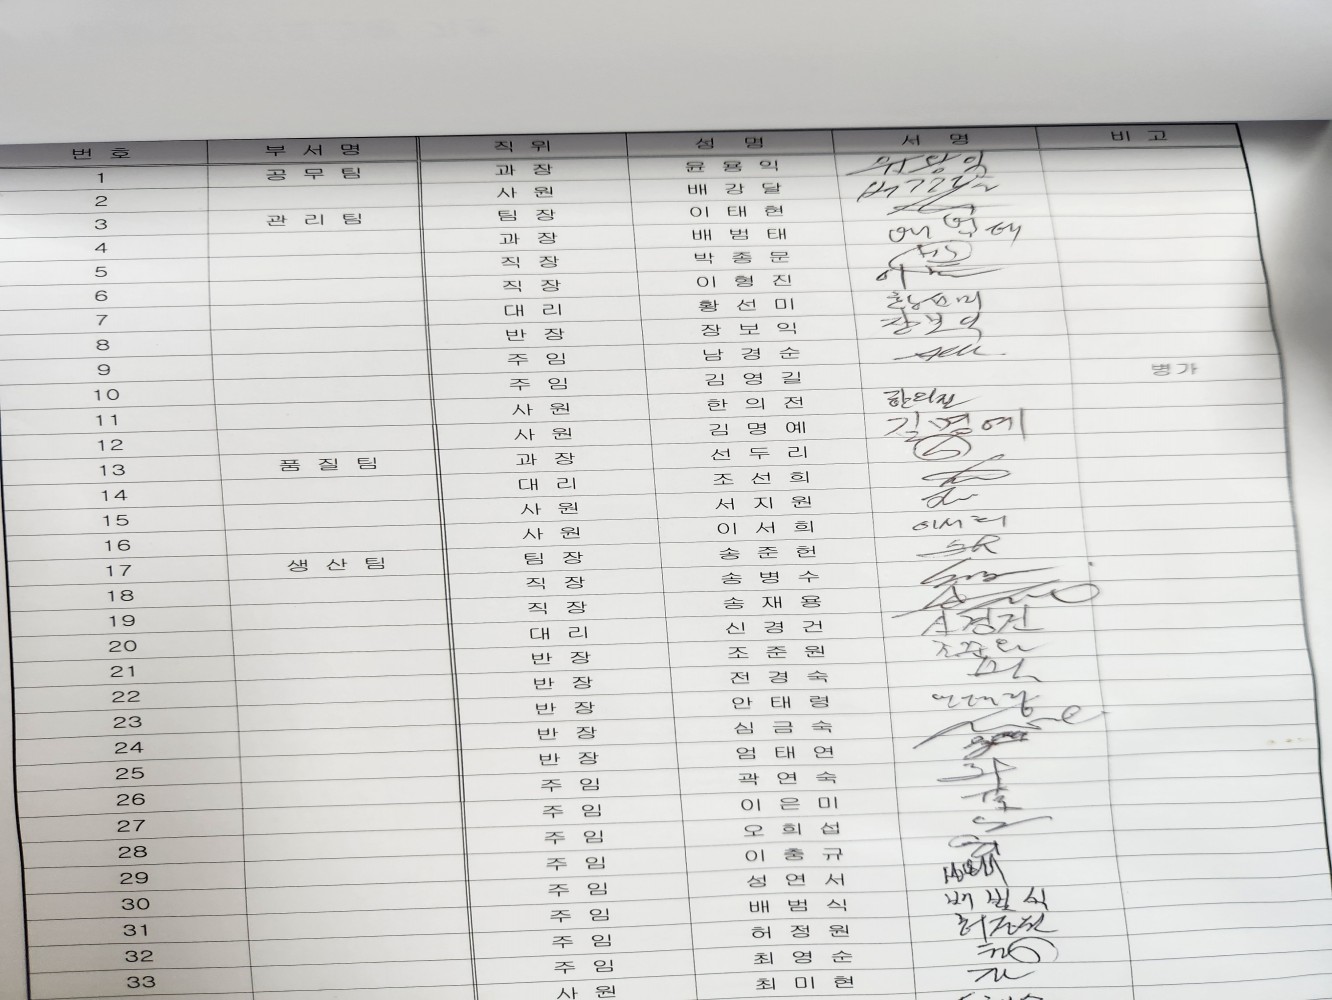 번 호 부 서 명 직 위 성 명 서 명 비 고
1 공 무 팀 과 장 윤 용 익
2 사 원 배 강 달
3 관 리 팀 팀 장 이 태 현
4 과 장 배 범 태
5 직 장 박 종 문
6 직 장 이 형 진
7 대 리 황 선 미 황선미
8 반 장 장 보 익 장보익
9 주 임 남 경 순
10 주 임 김 영 길 병가
11 사 원 한 의 전 한의전
12 사 원 김 명 예 김명예
13 품 질 팀 과 장 선 두 리
14 대 리 조 선 희
15 사 원 서 지 원
16 사 원 이 서 희 이서희
17 생 산 팀 팀 장 송 준 헌
18 직 장 송 병 수
19 직 장 송 재 용
20 대 리 신 경 건 신경건
21 반 장 조 준 원 조준원
22 반 장 전 경 숙
23 반 장 안 태 령
24 반 장 심 금 숙
25 반 장 엄 태 연
26 주 임 곽 연 숙
27 주 임 이 은 미
28 주 임 오 희 섭
29 주 임 이 충 규
30 주 임 성 연 서
31 주 임 배 범 식 배범식
32 주 임 허 정 원 허정원
33 주 임 최 영 순
사 원 최 미 현